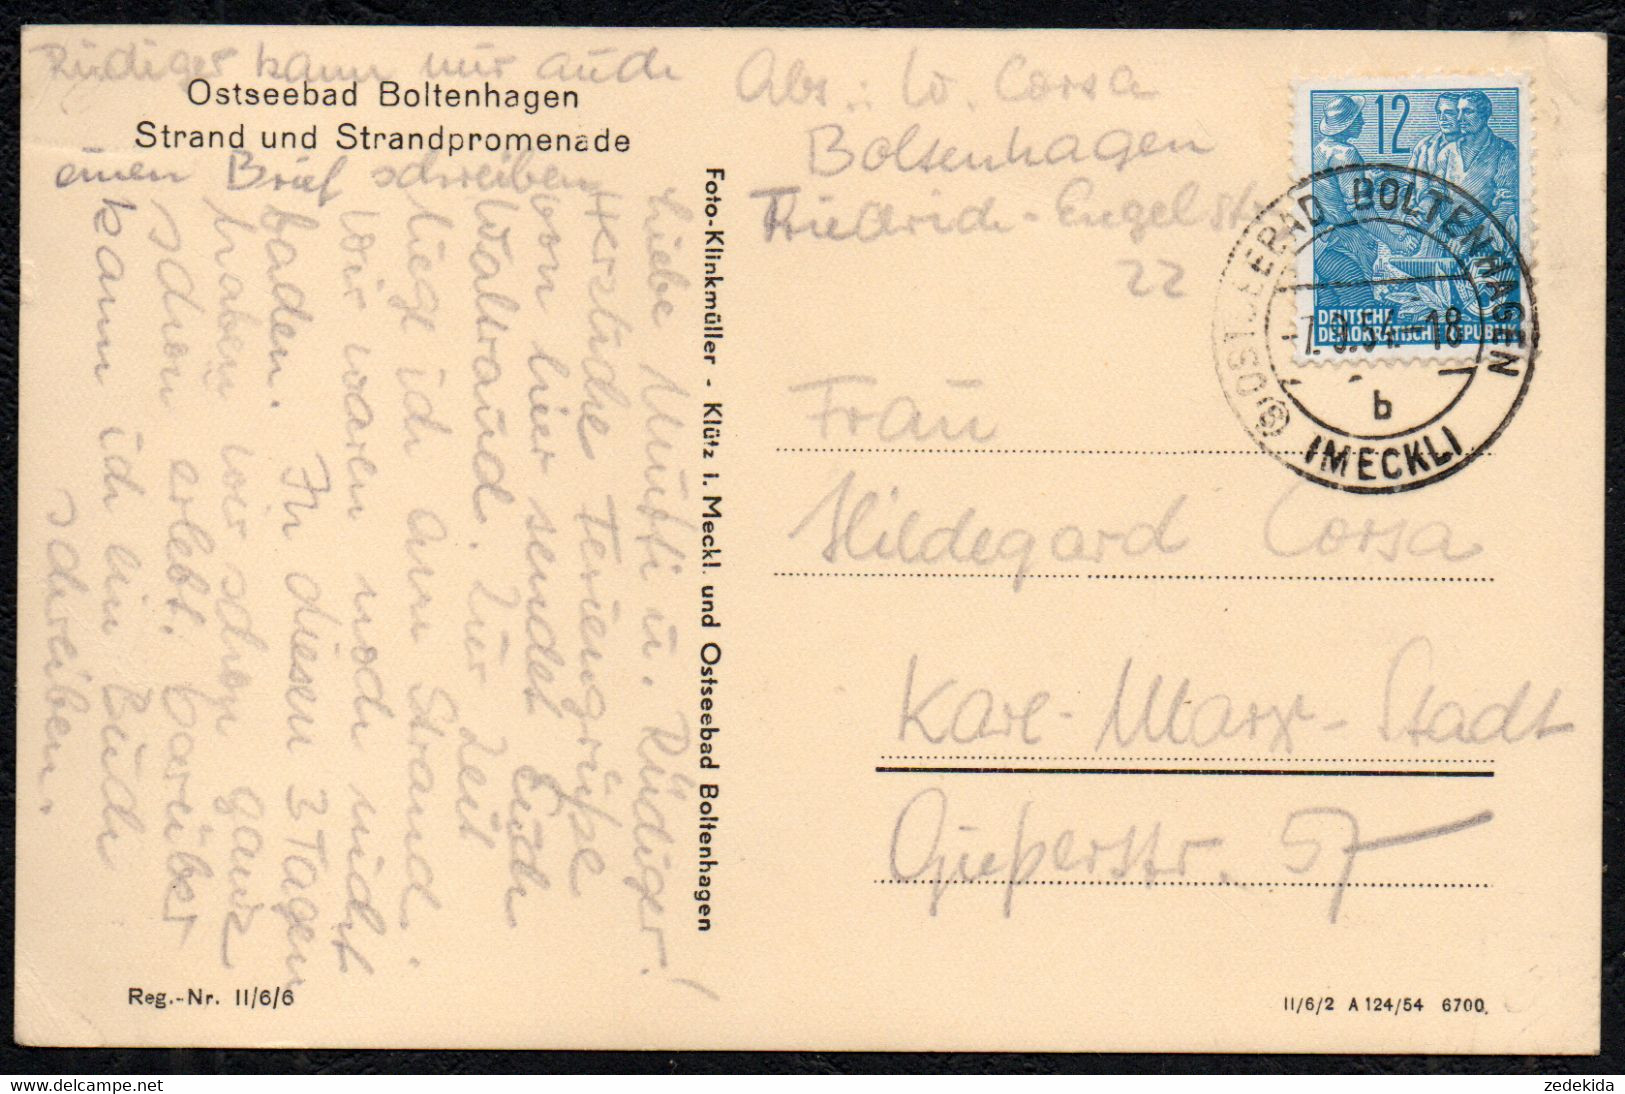 Rüdiger kann mir auch
Ostseebad Boltenhagen
Strand und Strandpromenade
einen Brief schreiben
Liebe Mutti u. Rüdiger!
Herzliche Feriengrüße
von hier sendet Euch
Waltraud. Zur Zeit
liege ich am Strand.
Wir waren noch nicht
baden. In diesen 3 Tagen
haben wir schon ganz
schön erlebt. Darüber
kann ich ein Buch
schreiben.
Reg.-Nr. II/6/6
Foto-Klinkmüller - Klütz i. Meckl. und Ostseebad Boltenhagen
Abs.: W. Corsa
Boltenhagen
Friedrich-Engelstr
22
12
DEUTSCHE
DEMOKRATISCHE REPUBLIK
OSTSEEBAD BOLTENHAGEN
7.9.54-18
b
(MECKL)
Frau
Hildegard Corsa
Karl-Marx-Stadt
Gießerstr. 57
II/6/2 A 124/54 6700.
zedekida